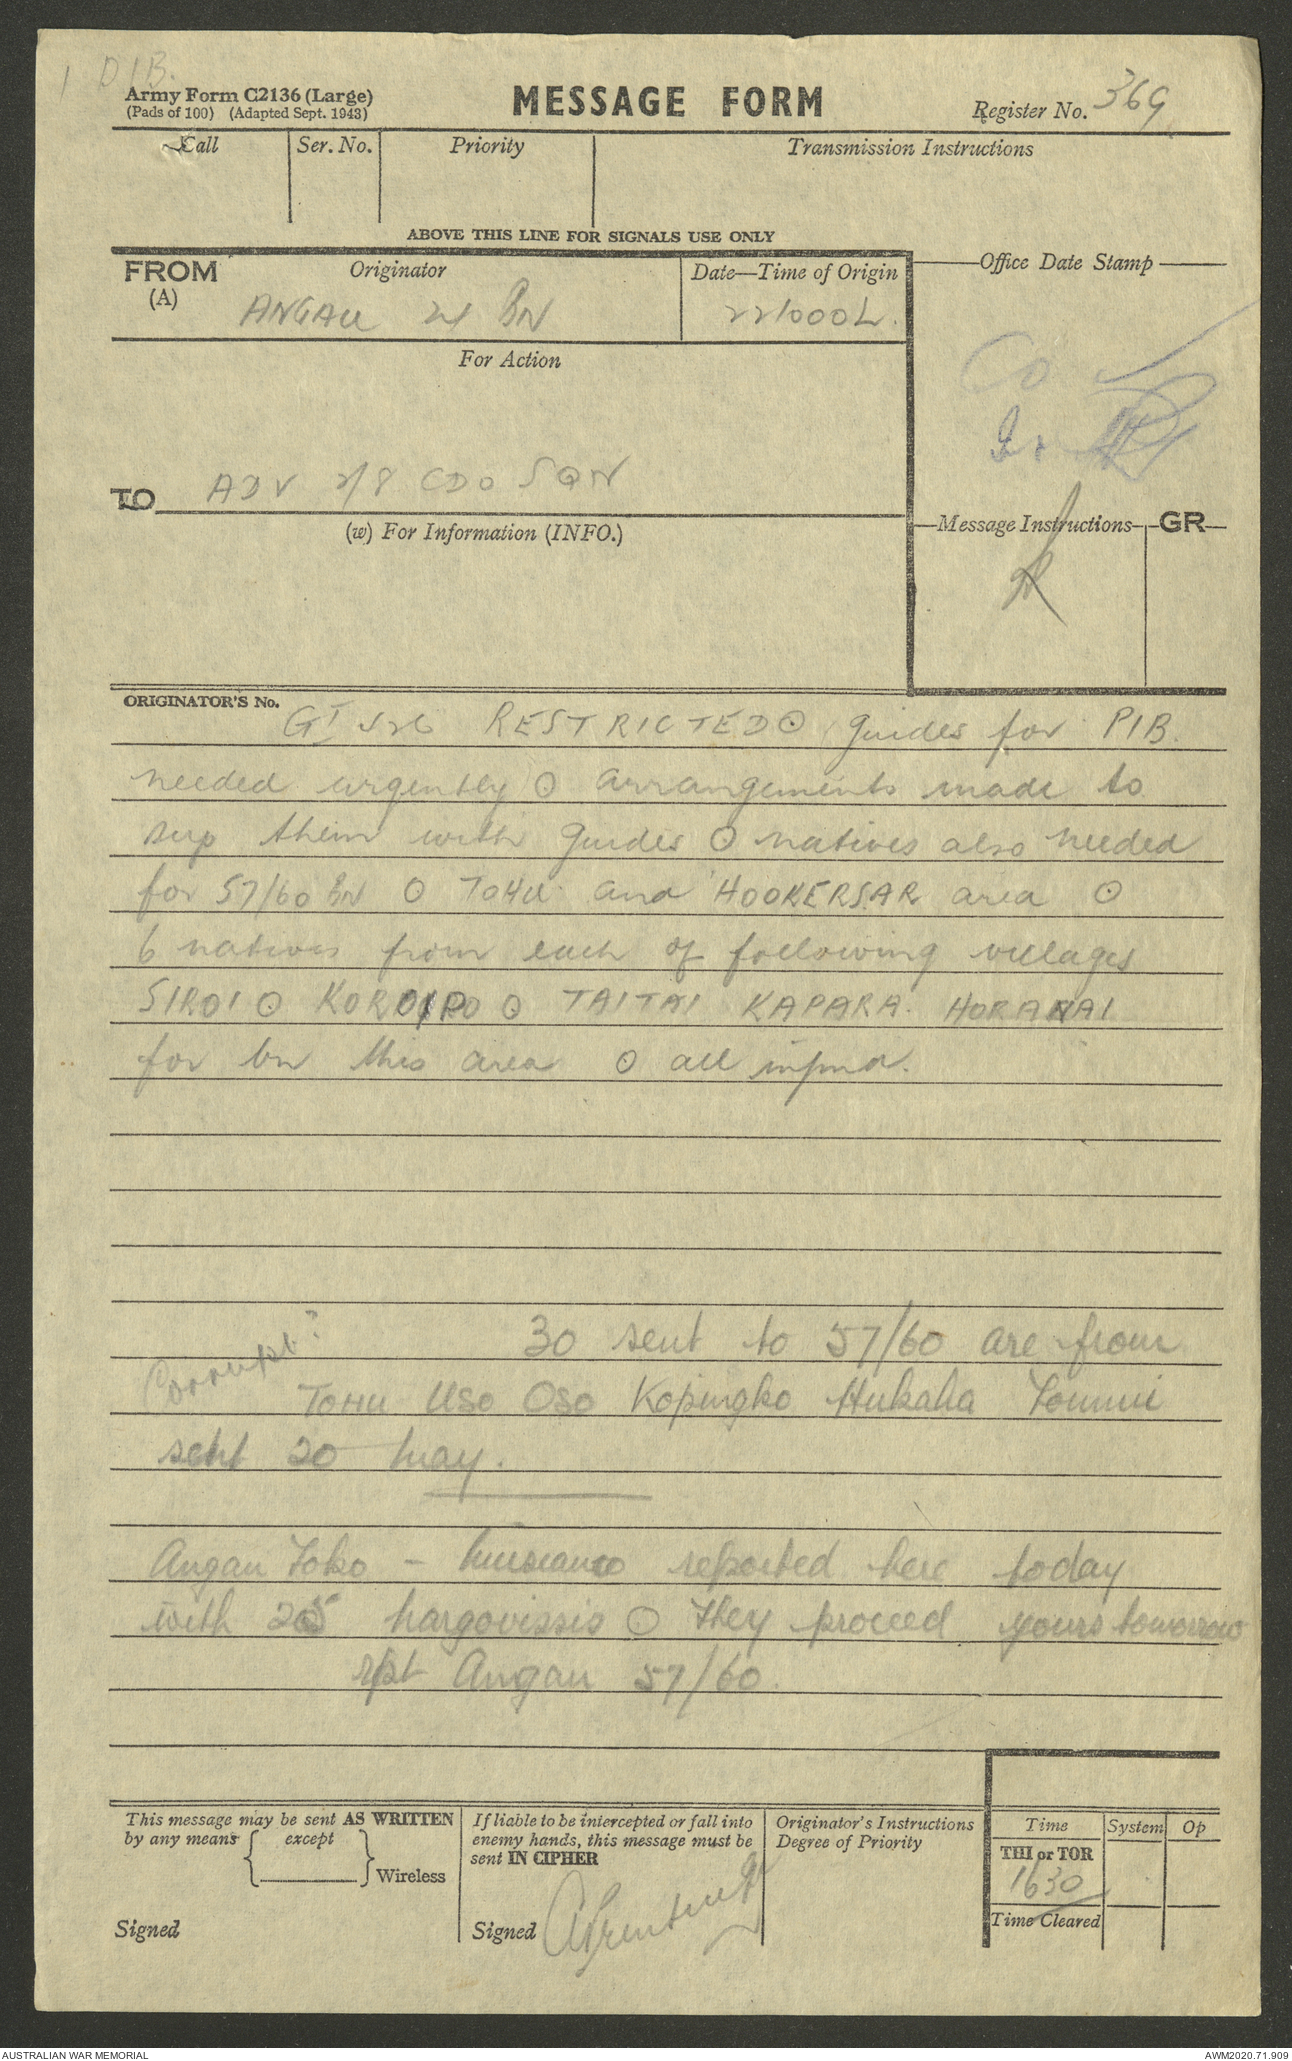 1 D1B.
Army Form C2136 (Large)
(Pads of 100) (Adapted Sept. 1943)
MESSAGE FORM
Register No. 369
Call
Ser. No.
Priority
Transmission Instructions
ABOVE THIS LINE FOR SIGNALS USE ONLY
FROM
(A)
Originator
ANGAU 24 BN
Date—Time of Origin
221000L.
Office Date Stamp
CO
For Action
TO ADV 2/8 CDO SQN
(w) For Information (INFO.)
Message Instructions
GR
ORIGINATOR'S No.
RESTRICTED ⊙ guides for PIB
needed urgently ⊙ arrangements made to
sup them with guides ⊙ natives also needed
for 57/60 BN ⊙ TOHU and HOOKERSAR area ⊙
6 natives from each of following villages
SIROI ⊙ KOROIPO ⊙ TAITAI KAPARA. HORANAI
for bn this area ⊙ all infmd.
Corrupt?
30 sent to 57/60 are from
TOHU USO OSO Kopingko Hukaha
sent 20 May.
Angau Toko – reported here today
with 25 ⊙ They proceed yours tomorrow
rpt Angau 57/60.
This message may be sent AS WRITTEN
by any means { except } Wireless
Signed
If liable to be intercepted or fall into
enemy hands, this message must be
sent IN CIPHER
Signed
Originator's Instructions
Degree of Priority
Time
System
Op
THI or TOR
1630
Time Cleared
AUSTRALIAN WAR MEMORIAL
AWM2020.71.909